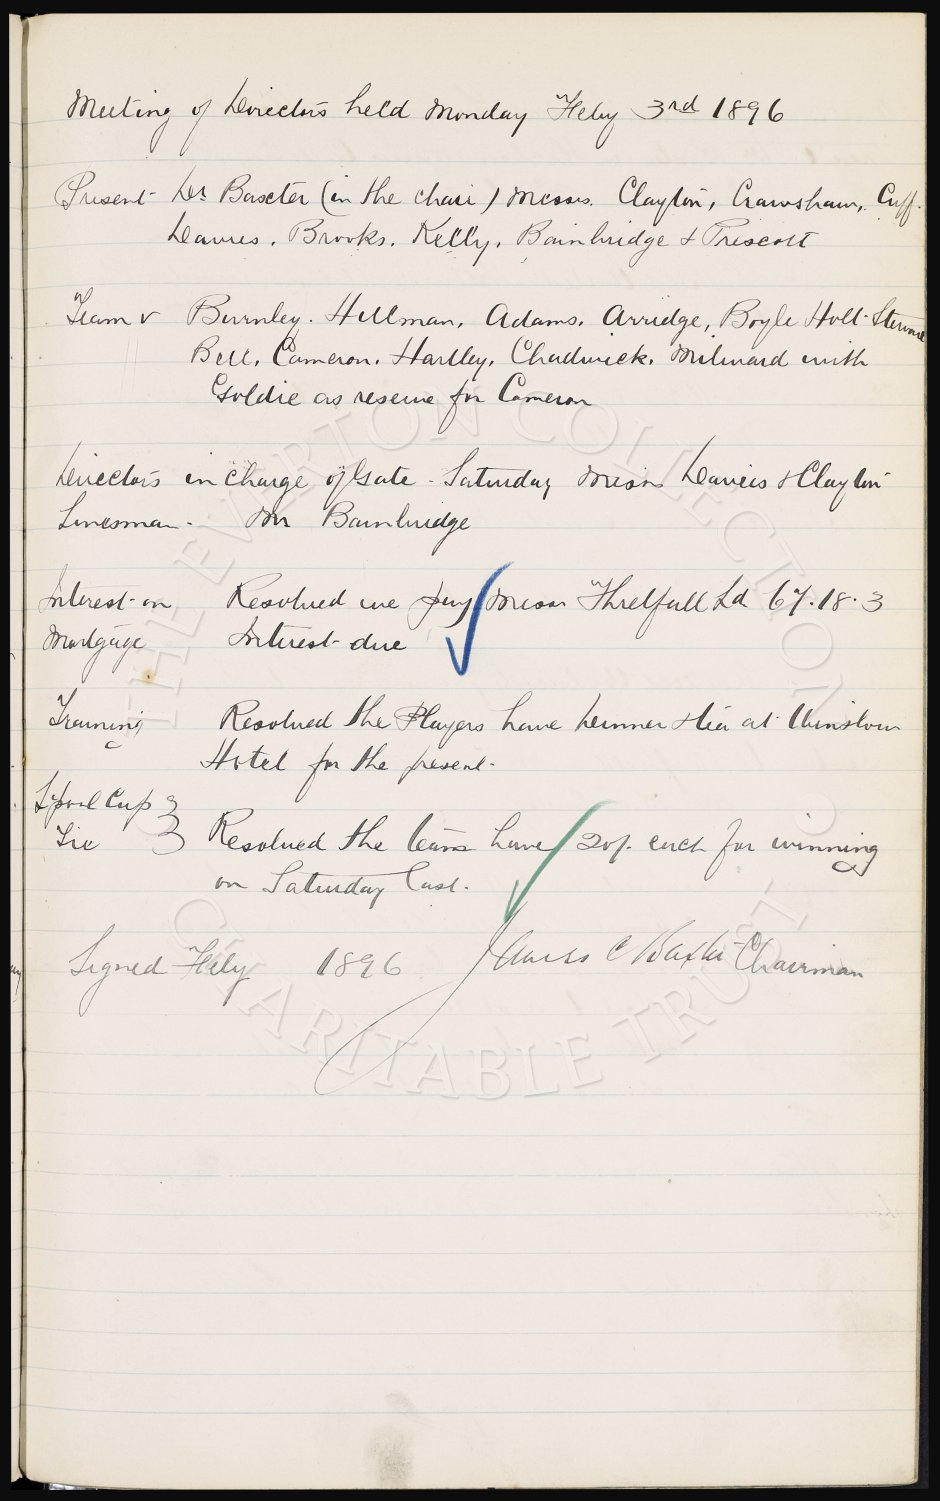 Meeting of Directors held Monday Feby 3rd 1896
Present Dr Baxter (in the chair) Messrs. Clayton, Crawshaw, Cuff.
Davies. Brooks. Kelly. Bainbridge & Prescott
Team v Burnley. Hillman. Adams. Arridge, Boyle Holt. Stewart
Bell. Cameron. Hartley. Chadwick. Milward with
Goldie as reserve for Cameron
Directors in charge of Gate - Saturday Messrs Davies & Clayton
Linesman - Mr Bainbridge
Interest on Resolved we pay Messrs Threlfall Ld 67.18.3
Mortgage Interest due
Training Resolved the Players have dinner & tea at
Hotel for the present.
L'pool Cup }
Tie } Resolved the team have 20/- each for winning
on Saturday last.
Signed Feby 1896 James C Baxter Chairman
THE EVERTON COLLECTION
CHARITABLE TRUST